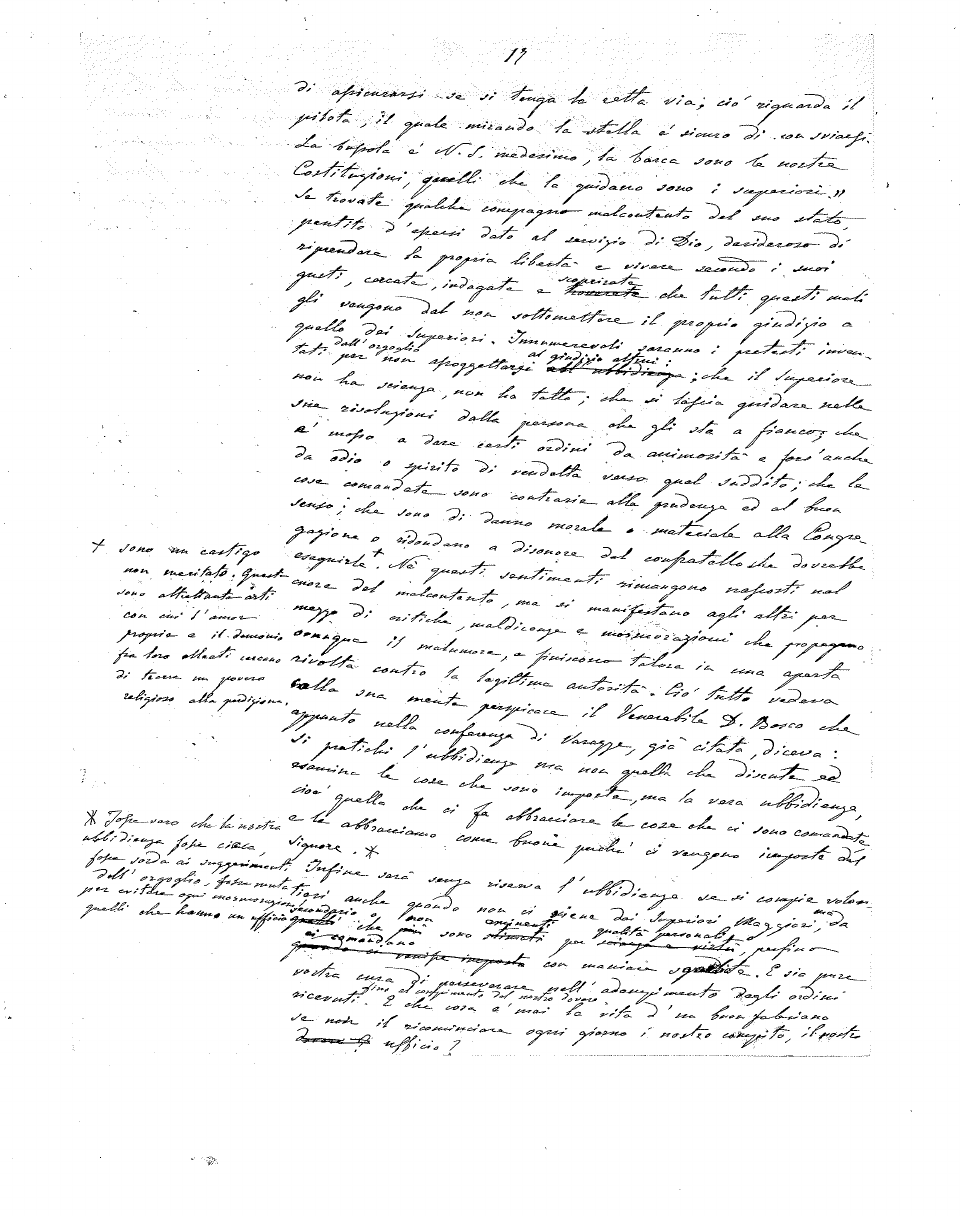 17
di assicurarsi se si tenga la retta via; ciò riguarda il
pilota, il quale mirando la stella è sicuro di non sviarsi.
La bussola è N. S. medesimo, la barca sono le nostre
Costituzioni, quelli che la guidano sono i superiori."
Se trovate qualche compagno malcontento del suo stato,
pentito d'essersi dato al servizio di Dio, desideroso di
riprendere la propria libertà e vivere secondo i suoi
scoprirete
gusti, cercate, indagate e troverete che tutti questi mali
gli vengono dal non sottomettere il proprio giudizio a
quello dei Superiori. Innumerevoli saranno i pretesti inven-
dall'orgoglio al giudizio altrui:
tati per non assoggettarsi all'ubbidienza; che il Superiore
non ha scienza, non ha tatto; che si lascia guidare nelle
sue risoluzioni dalla persona che gli sta a fianco; che
e' mosso a dare certi ordini da animosità e fors'anche
da odio o spirito di vendetta verso quel suddito; che le
cose comandate sono contrarie alla prudenza ed al buon
senso; che sono di danno morale o materiale alla Congre
gazione o ridondano a disonore del confratello che dovrebbe
eseguirle.+ Nè questi sentimenti rimangono nascosti nel
cuore del malcontento, ma si manifestano agli altri per
mezzo di critiche, maldicenze e mormorazioni che propagano
ovunque il malumore, e finiscono talora in una aperta
rivolta contro la legittima autorità. Ciò tutto vedeva
nella sua mente perspicace il Venerabile D. Bosco che
appunto nella conferenza di Varazze, già citata, diceva:
si pratichi l'ubbidienza ma non quella che discute ed
esamina le cose che sono imposte, ma la vera ubbidienza,
cioè quella che ci fa abbracciare le cose che ci sono comandate
e le abbracciamo come buone perchè ci vengono imposte dal
Signore. *
+ sono un castigo
non meritato. Questi
sono altrettante arti
con cui l'amor
proprio e il demonio
fra loro alleati cercano
di trarre un povero
religioso alla perdizione.
* Fosse vero che la nostra
ubbidienza fosse cieca,
fosse sorda ai suggerimenti
dell'orgoglio, fosse muta
per evitare ogni mormorazione
Infine sarà senza riserva l'ubbidienza se si compie volon-
tieri anche quando non ci viene dai Superiori Maggiori, ma da
secondario o non eminenti qualità personali, o
quelli che hanno un ufficio quelli che più sono stimati per scienza e virtù, perfino
ci comandano
quando ci venisse imposta con maniere sgarbate. E sia pure
vostra cura di perseverare nell'adempimento degli ordini
fino al compimento del nostro dovere
ricevuti. E che cosa e' mai la vita d'un buon salesiano
se non il ricominciare ogni giorno i nostro compito, il nostro
ufficio?